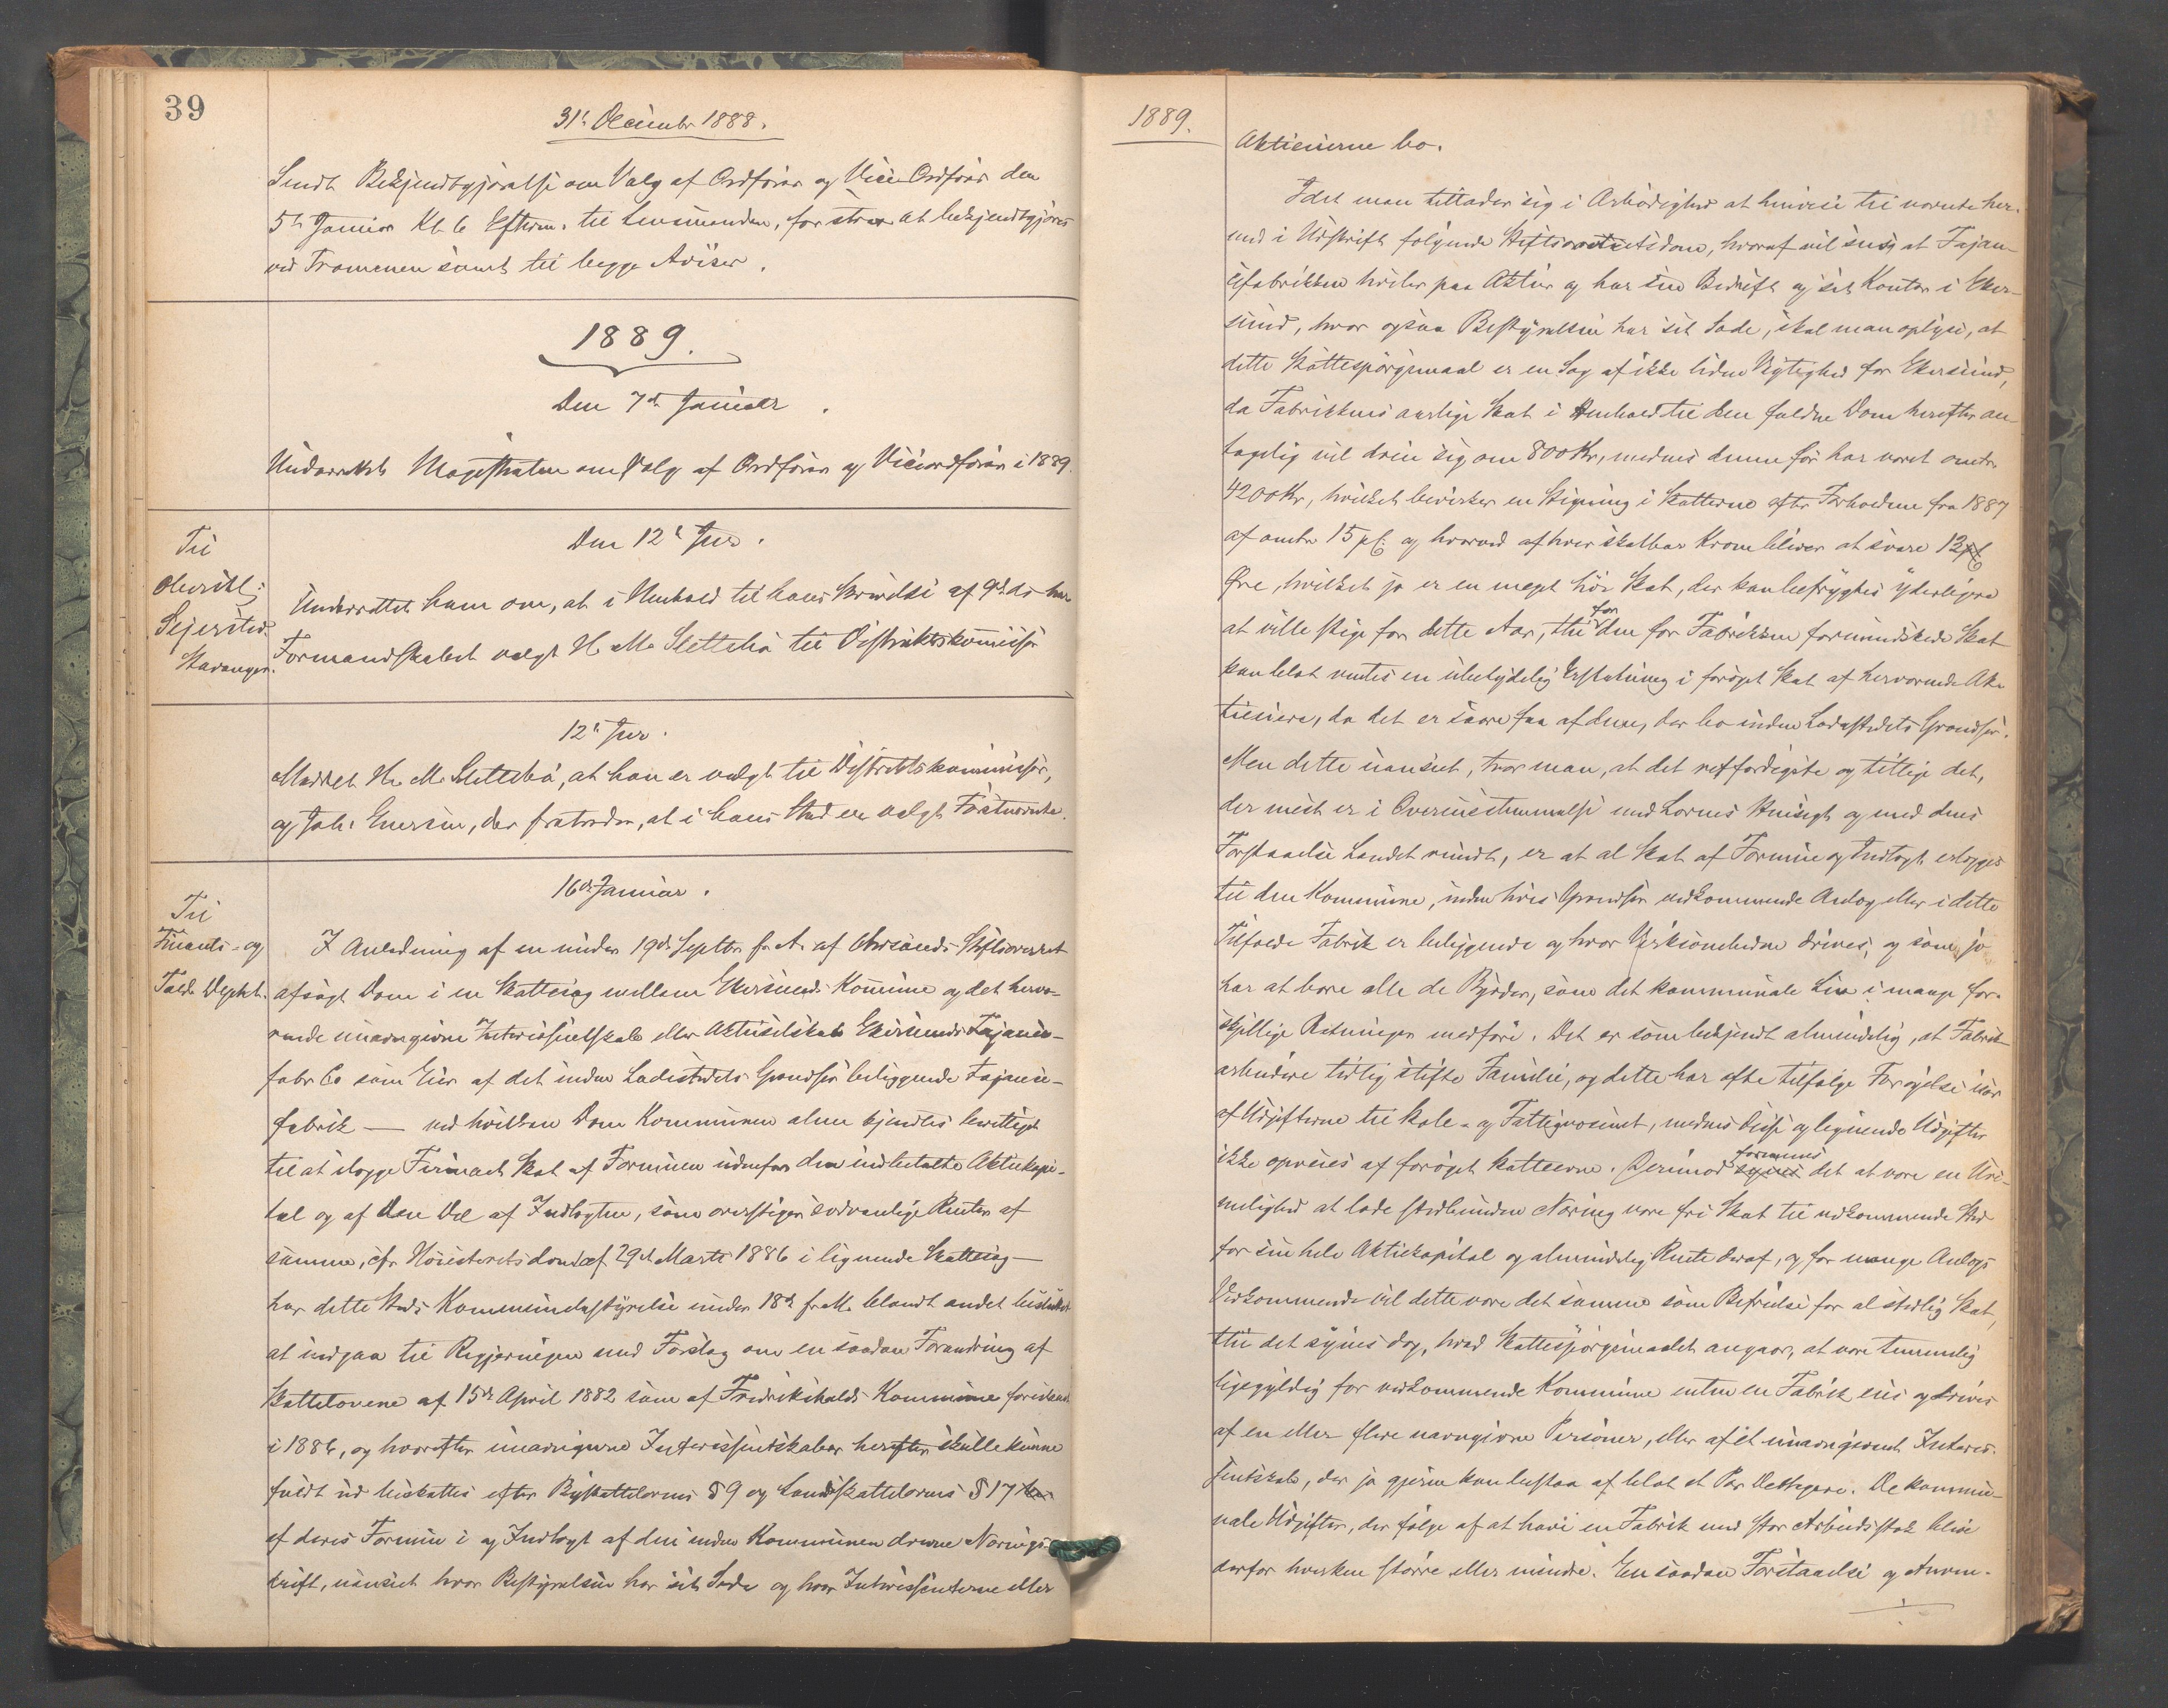 39
31' December 1888.
Sendt Bekjendtgjørelse om Valg af Ordfører og Vice Ordfører den
5te Januar Kl. 6 Efterm. til Lensmanden, for strax at bekjendtgjøres
ved Trommen samt til begge Aviser.
1889.
Den 7de Januar.
Underrettet Magistraten om Valg af Ordfører og Viceordfører i 1889.
Den 12te Jan.
Til
Oberstl:
Sejersted
Stavanger.
Underrettet ham om, at i Henhold til hans Skrivelse af 9de ds har
Formandskabet valgt H. M. Slettebø til Distriktskommissær
12te Jan.
Meddelt H. M. Slettebø, at han er valgt til Distriktskommissær,
og Joh: Enersen, der fratræder, at i hans Sted er valgt Fastnevnte.
16de Januar.
Til
Finants- og
Told Deptet.
I Anledning af en under 19de Septbr f. A. af Chrsands Stiftsoverret
afsagt Dom i en Skattesag mellem Ekersunds Kommune og det herværende
unavngivne Interessentskab eller Aktieselskab Ekersunds Fajance-
fabr Co som Eier af det inden Ladestedets Grændser beliggende Fajance-
fabrik — ved hvilken Dom Kommunen alene kjendtes berettiget
til at ilægge Firmaet Skat af Formuen udenfor den indbetalte Aktiekapi-
tal og af den Del af Indtægten, som overstiger sædvanlige Renter af
samme, cfr Høiesteretsdom af 29de Marts 1886 i lignende Skattesag —
har dette Steds Kommunebestyrelse under 18de f. M. blandt andet besluttet
at indgaa til Regjeringen med Forslag om en saadan Forandring af
Skattelovene af 15de April 1882 som af Fredrikshalds Kommune foreslaaet
i 1886, og hvorefter unavngivne Interessentskaber herefter skulle kunne
fuldt ud beskattes efter Byskattelovens § 9 og Landsskattelovens § 17
af deres Formue i og Indtægt af den inden Kommunen drevne Nærings-
drift, uanseet hvor Bestyrelsen har sit Sæde og hvor Interessenterne eller
1889.
Aktieeierne bo.
Idet man tillader sig i Ærbødighed at henvise til nævnte her-
med i Udskrift følgende Stiftsoverretsdom, hvoraf vil sees, at Fajan-
cefabrikken hviler paa Aktier og har sin Bedrift og sit Kontor i Eker-
sund, hvor ogsaa Bestyrelsen har sit Sæde, skal man oplyse, at
dette Skattespørgsmaal er en Sag af ikke liden Vigtighed for Ekersund,
da Fabrikkens aarlige Skat i Henhold til den faldne Dom herefter an-
tagelig vil dreie sig om 800 Kr, medens denne før har været omtr.
4200 Kr, hvilket bevirker en Stigning i Skatterne efter Forholdene fra 1887
af omtr 15 pCt. og hvorved af hver skatbar Krone bliver at svare 12
Øre, hvilket jo er en meget høi Skat, der kan befrygtes yderligere
at ville stige for dette Aar, thi for den for Fabrikken formindskede Skat
kan blot ventes en ubetydelig Erstatning i forøget Skat af herværende Ak-
tieeiere, da det er saare faa af disse, der bo inden Ladestedets Grændser.
Men dette uanseet, tror man, at det retfærdigste og tillige det,
der mest er i Overensstemmelse med Lovens Hensigt og med dens
Forstaaelse Landet rundt, er at al Skat af Formue og Indtægt erlægges
til den Kommune, inden hvis Grændser vedkommende Anlæg eller i dette
Tilfælde Fabrik er beliggende og hvor Virksomheden drives, og som jo
har at bære alle de Byrder, som det kommunale Liv i mange for-
skjellige Retninger medføre. Det er som bekjendt almindelig, at Fabrik-
arbeidere tidlig stifte Familie, og dette har ofte tilfølge Forøgelse især
af Udgifterne til Skole- og Fattigvæsenet, medens disse og lignende Udgifter
ikke opveies af forøget Skatteevne. Derimod formenes det at være en Uri-
melighed at lade stedbunden Næring være fri Skat til vedkommende Sted
for sin hele Aktiekapital og almindelig Rente deraf, og for mange Anlægs
Vedkommende vil dette være det samme som Befrielse for al stedlig Skat,
thi det synes dog, hvad Skattespørgsmaalet angaar, at være temmelig
ligegyldig for vedkommende Kommune enten en Fabrik eies og drives
af en eller flere navngivne Personer, eller af et unavngivent Interes-
sentskab, der jo gjerne kan bestaa af blot et Par Deltagere. De kommu-
nale Udgifter, der følge af at have en Fabrik med stor Arbeidsstok blive
derfor hverken større eller mindre. En saadan Forstaaelse og Anven-